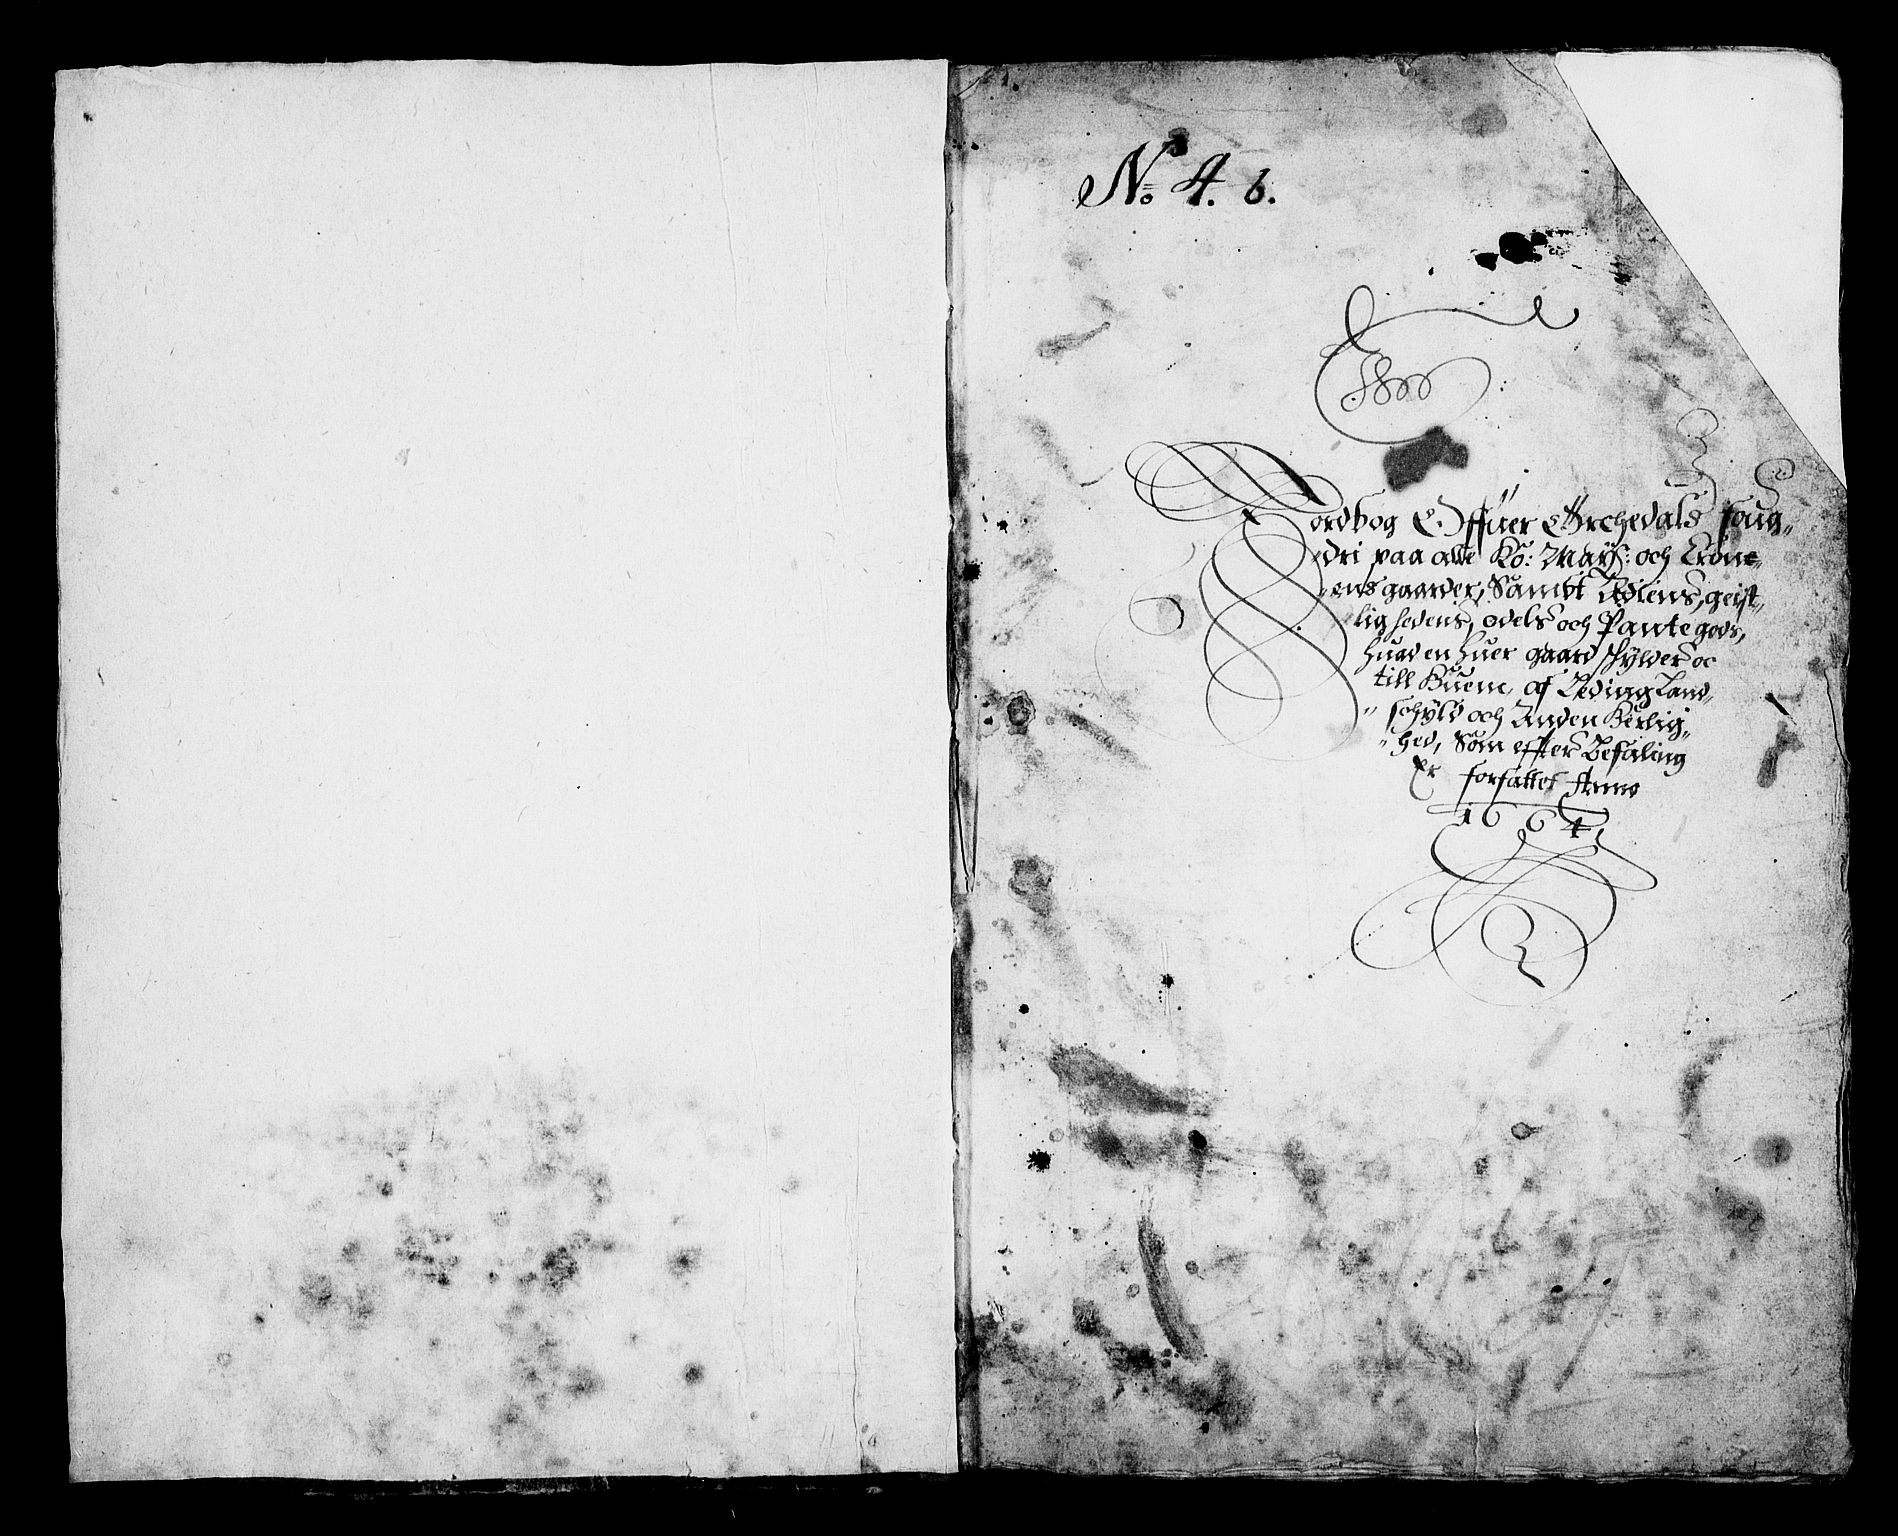 No 4. 6.
Jordbog Offuer Orchedals foug-
dri paa alle Ko: Mayß: och Cron-
ens gaarder, Sambt Adlens, geist-
lighedens, odels och Pante gods,
huad en huer gaard schylder oc
till huem, af Leding Land-
schyld och Anden herlig-
hed, Som effter Befaling
Er forfattet Anno
1664